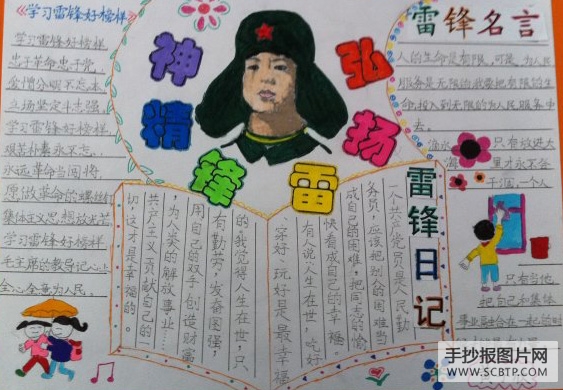 《学习雷锋好榜样》
学习雷锋好榜样
忠于革命忠于党
爱憎分明不忘本
立场坚定斗志强
学习雷锋好榜样
艰苦朴素永不忘
永远革命当闯将,
愿做革命的螺丝钉
集体主义思想放光芒
学习雷锋好榜样
毛主席的教导记心上
全心全意为人民。
弘扬
雷锋
精神
雷锋名言
人的生命是有限,可是,为人民
服务是无限的,我要把有限的生
命,投入到无限的为人民服务中
去。
只有放进大
海里才永不会
干涸,一个人
只有当他
把自己和集体
事业融合在一起的时
雷锋日记
一个共产党员是人民勤
务员,应该把别人的困难当
成自己的困难,把同志的愉
快看成自己的幸福。
有人说人生在世,吃好
、穿好、玩好是最幸福
的我觉得人生在世,只
有勤劳,发奋图强,
用自己的双手创造财富
,为人类的解放事业……
共产主义贡献自己的一
切,这才是幸福的。
手抄报图片网
WWW.SCBTP.COM